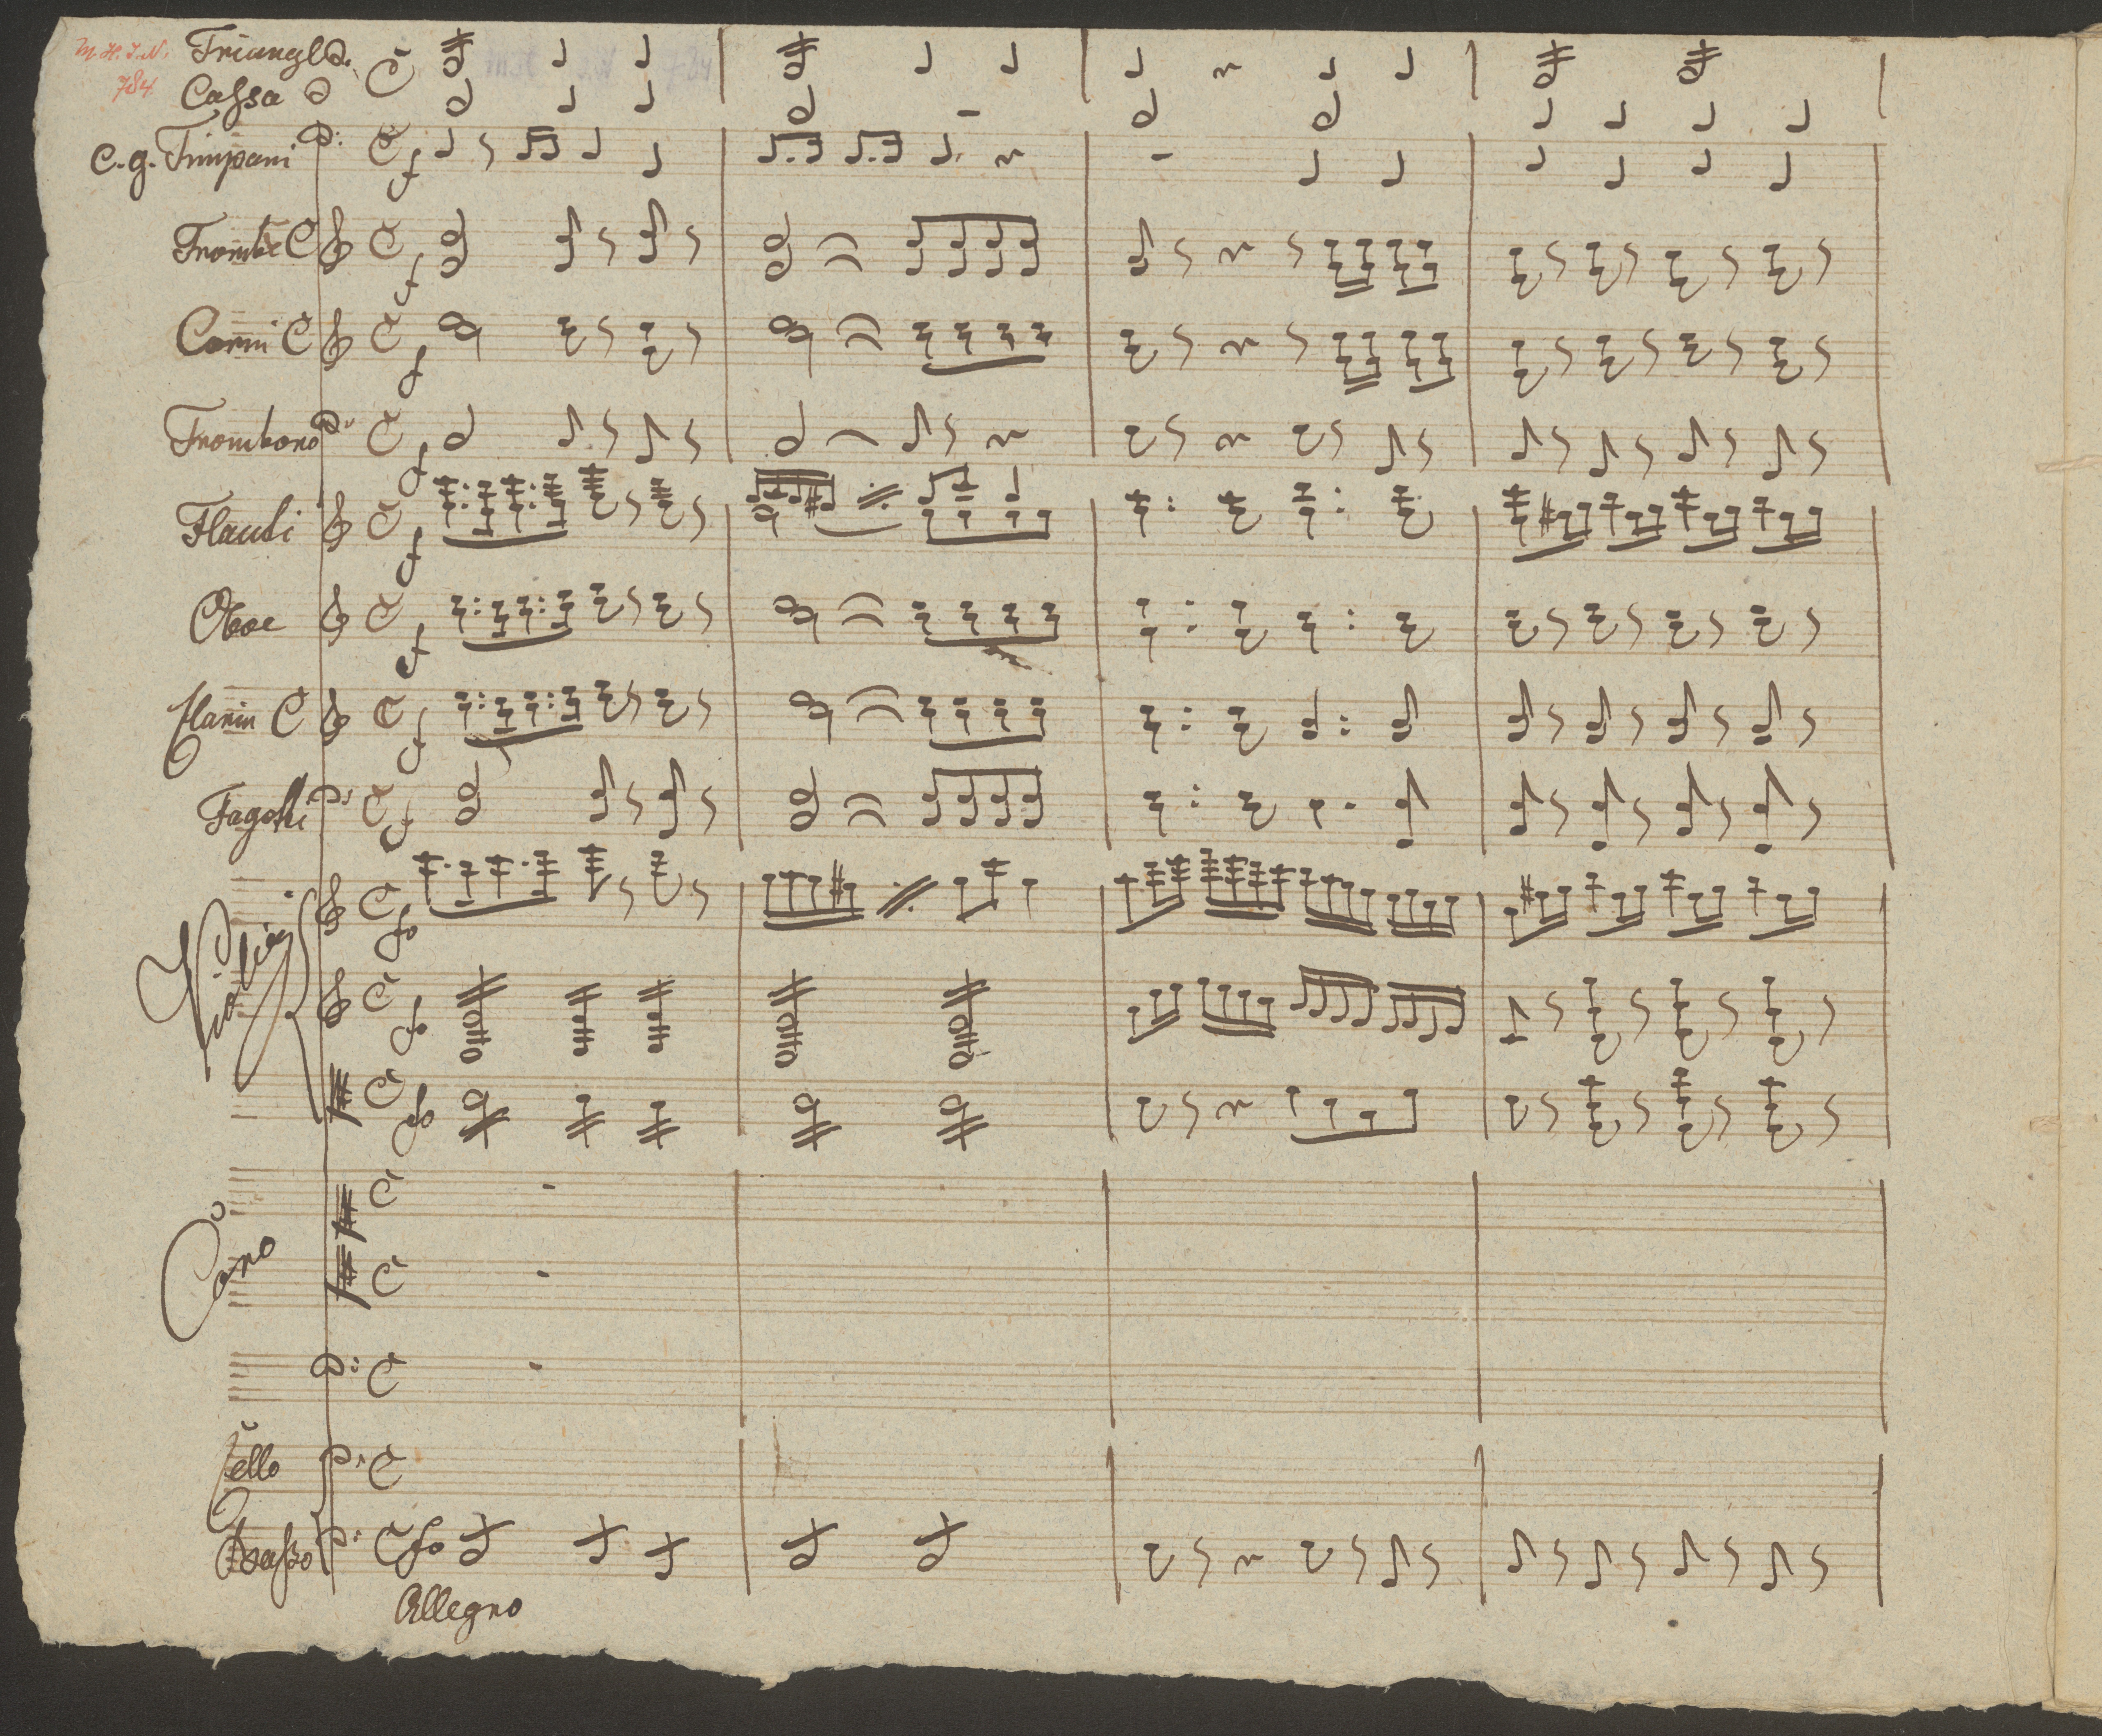 M. H. I. N.
784
Triangl
Cassa
C. g. Timpani
Trombe C
Corni C
Trombono
Flauti
Oboe
Clarin C
Fagotti
Violini
Coro
Cello
Basso
Allegro